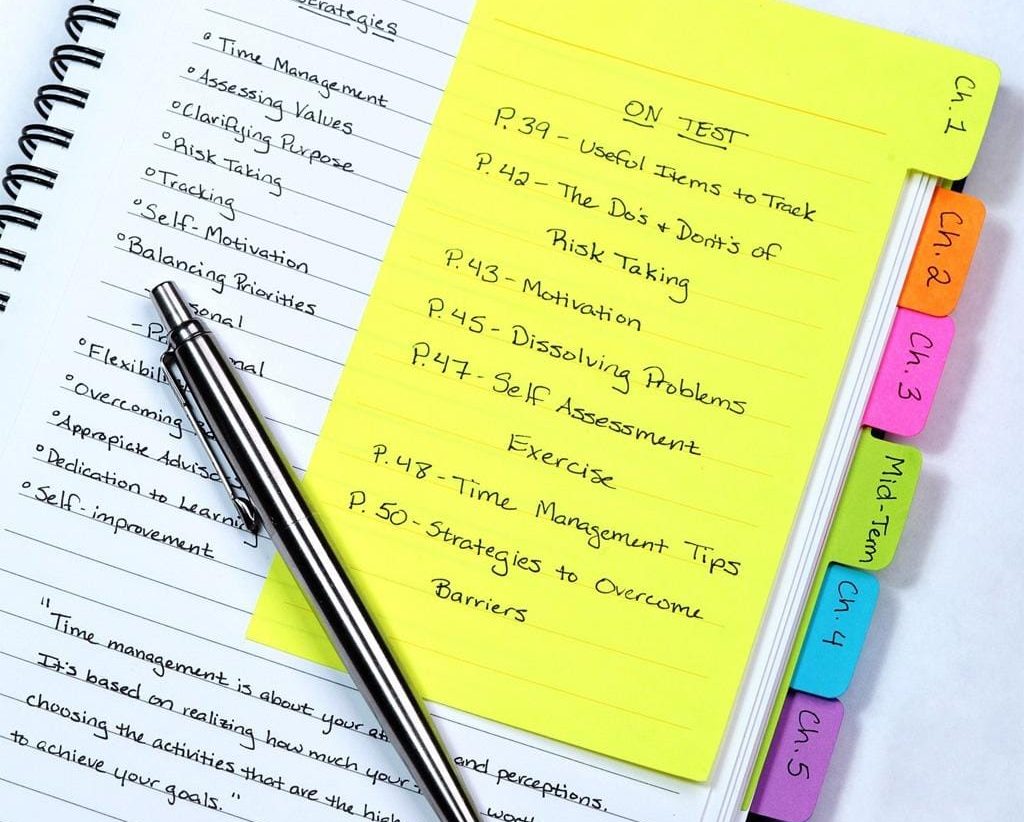 Strategies
° Time Management
° Assessing Values
° Clarifying Purpose
° Risk Taking
° Tracking
° Self-Motivation
° Balancing Priorities
° Flexibili
° Overcoming
° Appropiate Adviso
° Dedication to Learning
° Self-improvement
"Time management is about your and perceptions.
It's based on realizing how much your worth
choosing the activities that are the
to achieve your goals."
ON TEST
P.39 - Useful Items to Track
P.42 - The Do's + Dont's of
Risk Taking
P.43 - Motivation
P.45 - Dissolving Problems
P.47 - Self Assessment
Exercise
P.48 - Time Management Tips
P.50 - Strategies to Overcome
Barriers
Ch. 1
Ch. 2
Ch. 3
Mid-Term
Ch. 4
Ch. 5